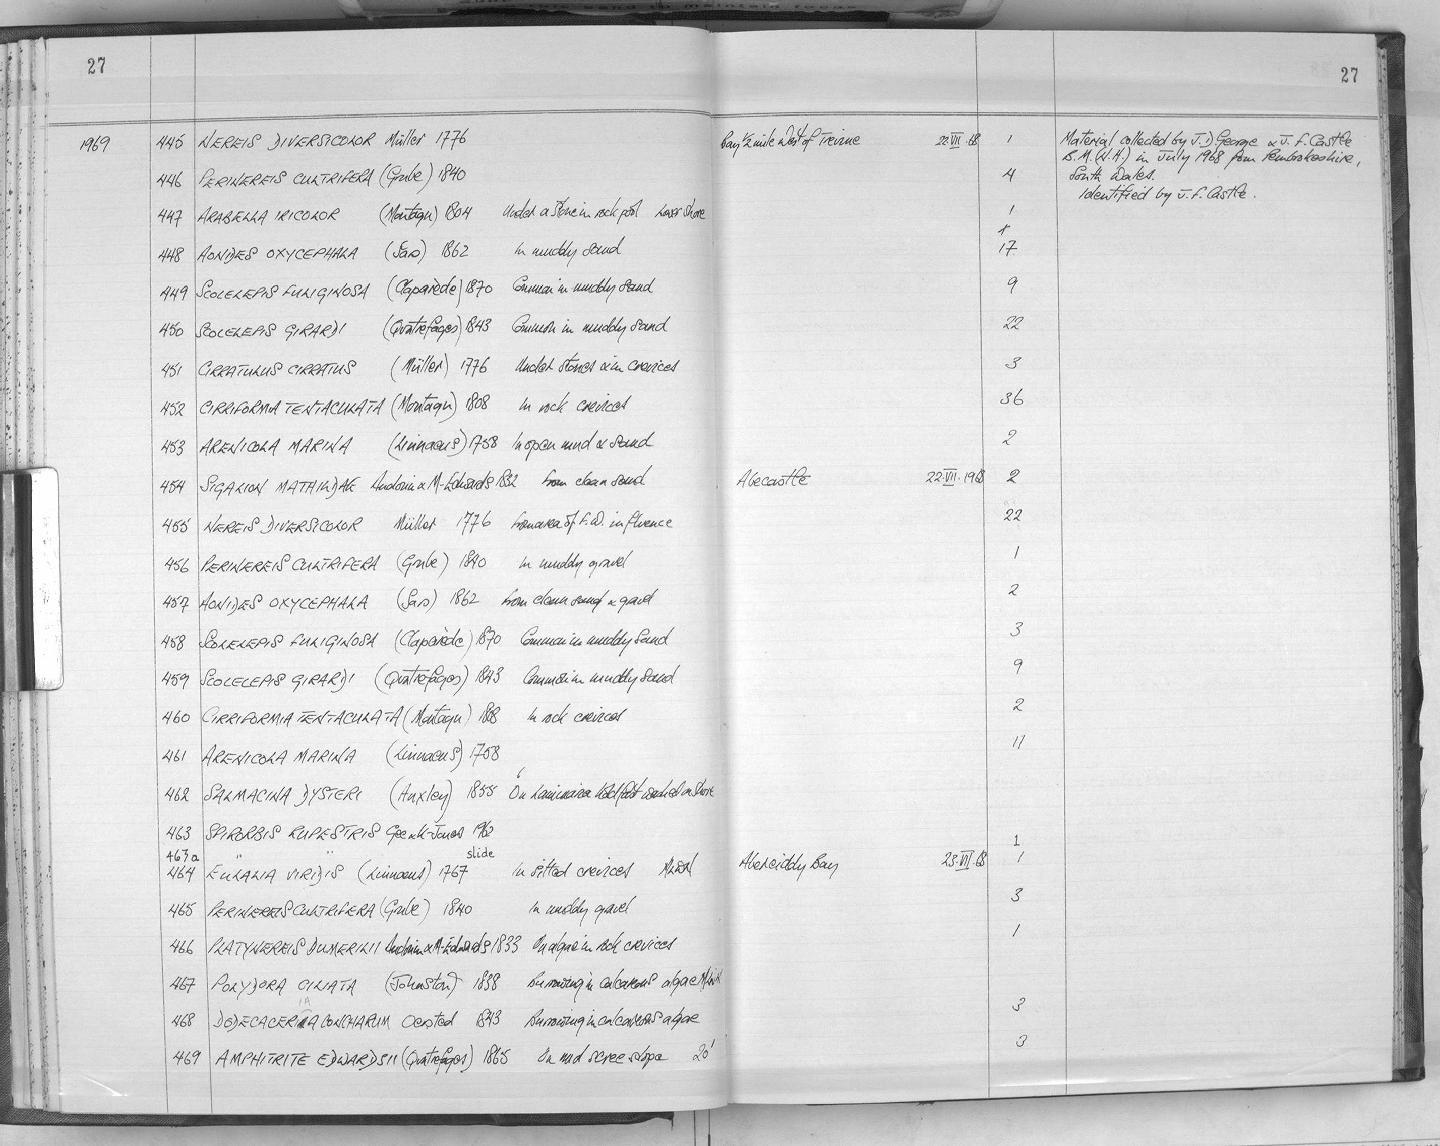 27 27
1969 445 NEREIS DIVERSICOLOR Müller 1776 Bay ½ mile West of Trevine 22.VII.68 1 Material collected by J.D. George & J.F. Castle
B.M.(N.H.) in July 1968 from Pembrokeshire,
446 PERINEREIS CULTRIFERA (Grube) 1840 4 South Wales.
Identified by J.F. Castle.
447 ARABELLA IRICOLOR (Montagu) 1804 Under a stone in rock pool Lower Shore 1
448 AONIDES OXYCEPHALA (Sars) 1862 In muddy sand 17
449 SCOLELEPIS FULIGINOSA (Claparède) 1870 Common in muddy sand 9
450 SCOLELEPIS GIRARDI (Quatrefages) 1843 Common in muddy sand 22
451 CIRRATULUS CIRRATUS (Müller) 1776 Under stones & in crevices 3
452 CIRRIFORMIA TENTACULATA (Montagu) 1808 In rock crevices 36
453 ARENICOLA MARINA (Linnaeus) 1758 In open mud & sand 2
454 SIGALION MATHILDAE Audouin & M-Edwards 1832 From clean sand Abecastle 22.VII.1968 2
455 NEREIS DIVERSICOLOR Müller 1776 From area of F.W. influence 22
456 PERINEREIS CULTRIFERA (Grube) 1840 In muddy gravel 1
457 AONIDES OXYCEPHALA (Sars) 1862 From clean sand & gravel 2
458 SCOLELEPIS FULIGINOSA (Claparède) 1870 Common in muddy sand 3
459 SCOLELEPIS GIRARDI (Quatrefages) 1843 Common in muddy sand 9
460 CIRRIFORMIA TENTACULATA (Montagu) 1808 In rock crevices 2
461 ARENICOLA MARINA (Linnaeus) 1758 11
462 SALMACINA DYSTERI (Huxley) 1855 On Laminaria holdfast washed on shore
463 SPIRORBIS RUPESTRIS Gee & K-Jones 1962 1
463a " " slide
464 EULALIA VIRIDIS (Linnaeus) 1767 In silted crevices Abereiddy Bay 23.VII.68 1
465 PERINEREIS CULTRIFERA (Grube) 1840 In muddy gravel 3
466 PLATYNEREIS DUMERILII Audouin & M-Edwards 1833 On algae in rock crevices 1
467 POLYDORA CILIATA (Johnston) 1838 Burrowing in calcareous algae
468 DODECACERIA CONCHARUM Oersted 1843 Burrowing in calcareous algae 3
469 AMPHITRITE EDWARDSII (Quatrefages) 1865 On mud scree slope 20' 3